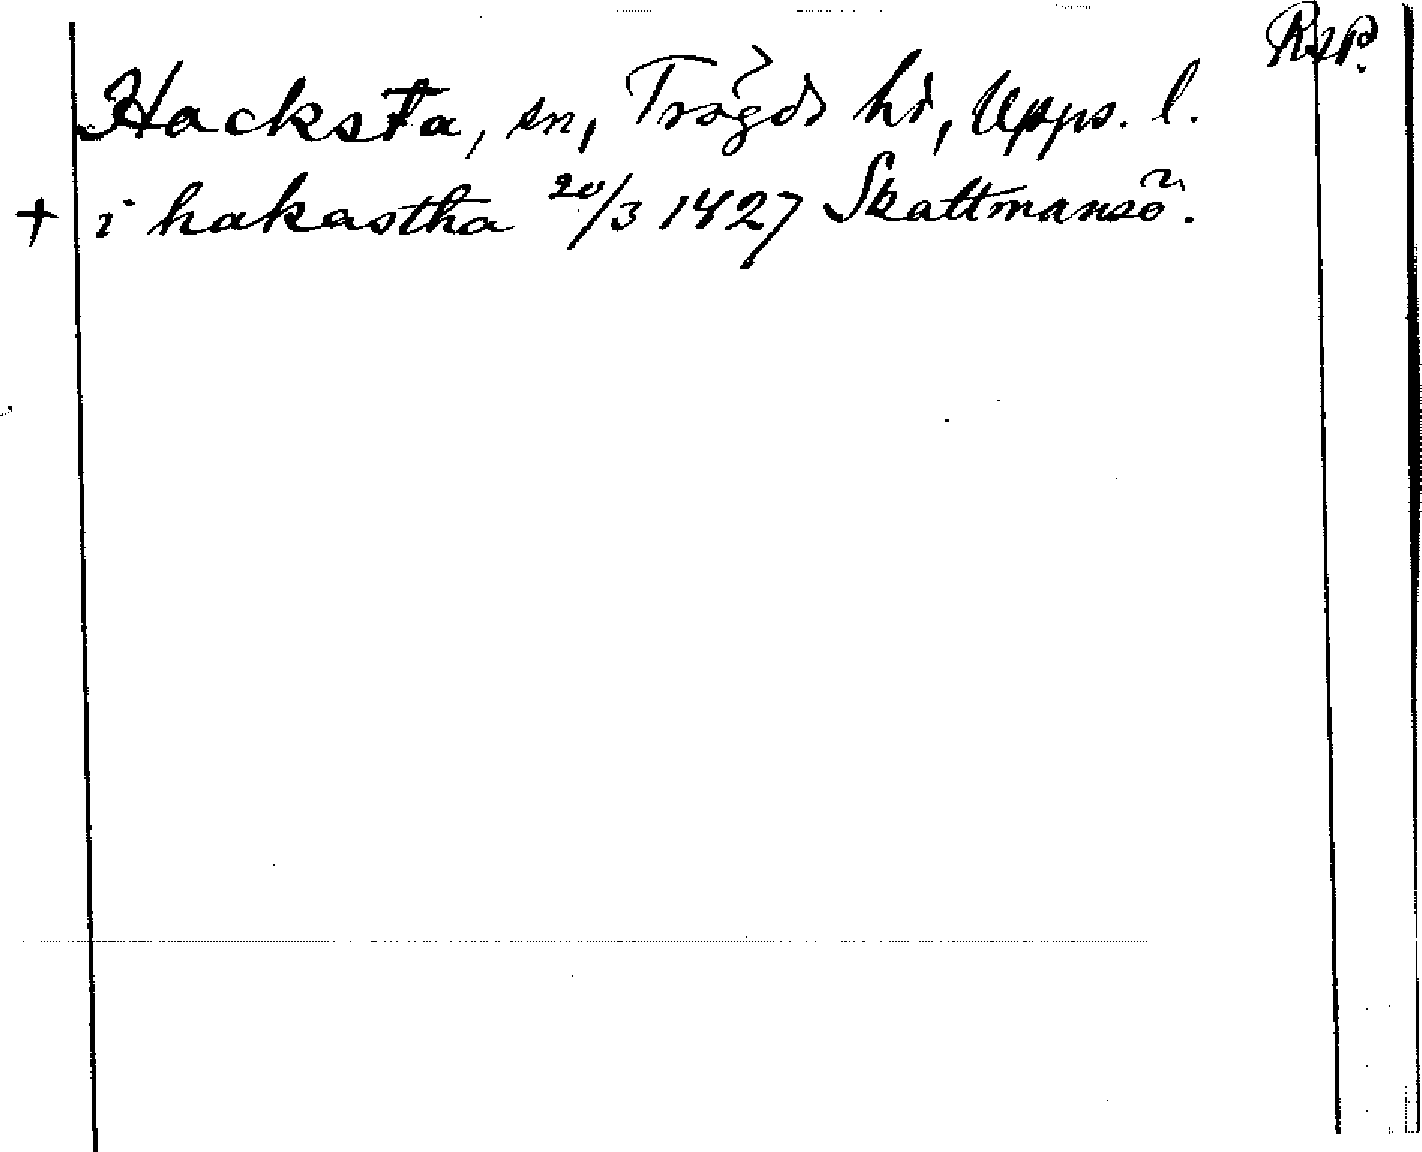 RAP.
Hacksta, sn, Trögds hd, Upps. l.
+ i hakastha 20/3 1427 Skattmansö.